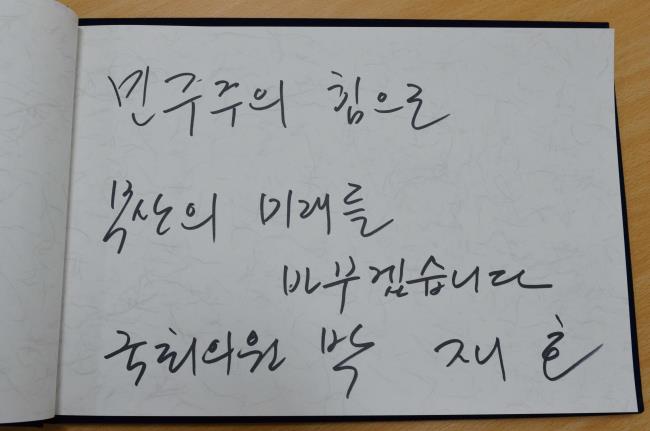 민주주의 힘으로
부산의 미래를
바꾸겠습니다
국회의원 박 재 호